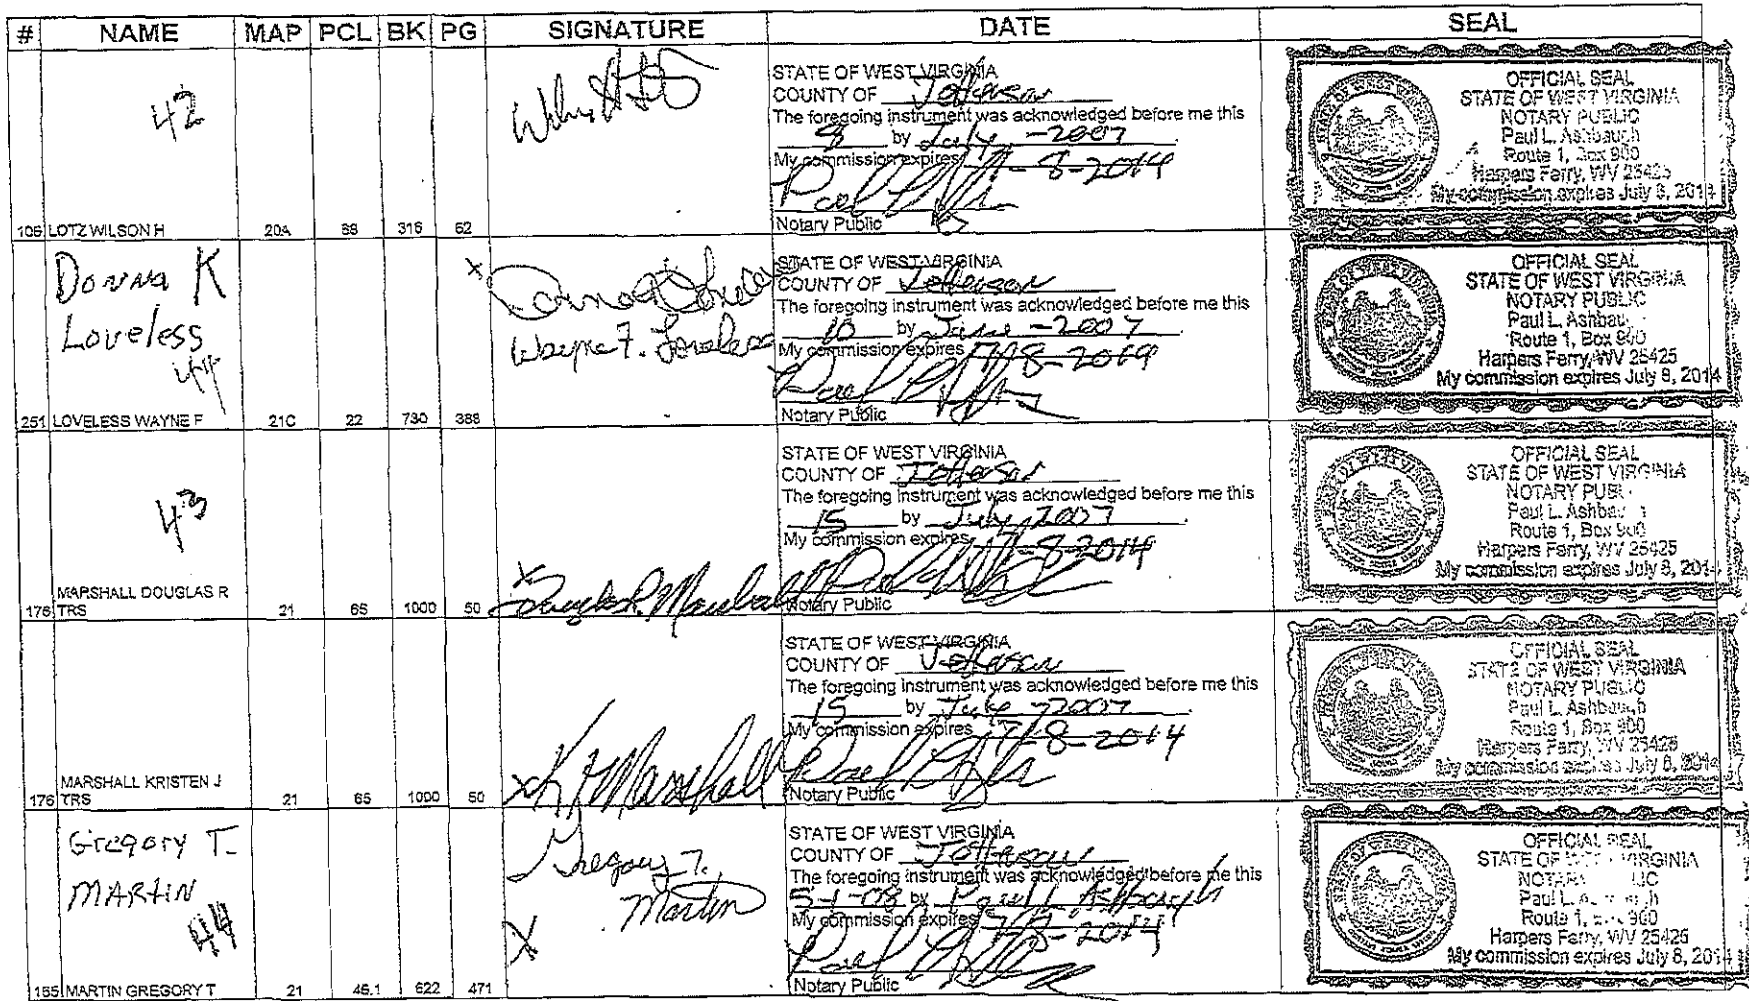 # NAME MAP PCL BK PG SIGNATURE DATE SEAL
42
STATE OF WEST VIRGINIA
COUNTY OF Jefferson
The foregoing instrument was acknowledged before me this
by July -2007
My commission expires 7-8-2014
Notary Public
OFFICIAL SEAL
STATE OF WEST VIRGINIA
NOTARY PUBLIC
Paul L. Ashbaugh
Route 1, Box 900
Harpers Ferry, WV 25425
My commission expires July 8, 2014
106 LOTZ WILSON H 20A 316 62
Donna K
Loveless
44
x
Wayne F. Loveless
STATE OF WEST VIRGINIA
COUNTY OF Jefferson
The foregoing instrument was acknowledged before me this
10 by June -2007
My commission expires 7-8-2014
Notary Public
OFFICIAL SEAL
STATE OF WEST VIRGINIA
NOTARY PUBLIC
Paul L. Ashbau
Route 1, Box 900
Harpers Ferry, WV 25425
My commission expires July 8, 2014
251 LOVELESS WAYNE F 21C 22 730 388
43
x
Douglas R. Marshall
STATE OF WEST VIRGINIA
COUNTY OF Jefferson
The foregoing instrument was acknowledged before me this
15 by July, 2007
My commission expires 7-8-2014
Notary Public
OFFICIAL SEAL
STATE OF WEST VIRGINIA
NOTARY PUBL
Paul L. Ashbau
Route 1, Box 900
Harpers Ferry, WV 25425
My commission expires July 8, 201
MARSHALL DOUGLAS R
176 TRS 21 65 1000 50
x K J Marshall
STATE OF WEST VIRGINIA
COUNTY OF Jefferson
The foregoing instrument was acknowledged before me this
15 by July -2007
My commission expires 7-8-2014
Notary Public
OFFICIAL SEAL
STATE OF WEST VIRGINIA
NOTARY PUBLIC
Paul L. Ashbaugh
Route 1, Box 900
Harpers Ferry, WV 25425
My commission expires July 8, 2014
MARSHALL KRISTEN J
176 TRS 21 65 1090 50
Gregory T.
MARTIN
44
Gregory T.
Martin
X
STATE OF WEST VIRGINIA
COUNTY OF Jefferson
The foregoing instrument was acknowledged before me this
5-1-08 by Paul L Ashbaugh
My commission expires 7-8-2014
Notary Public
OFFICIAL SEAL
STATE OF VIRGINIA
Paul L.
Route 1, 900
Harpers Ferry, WV 25425
My commission expires July 8, 2014
155 MARTIN GREGORY T 21 46.1 622 471